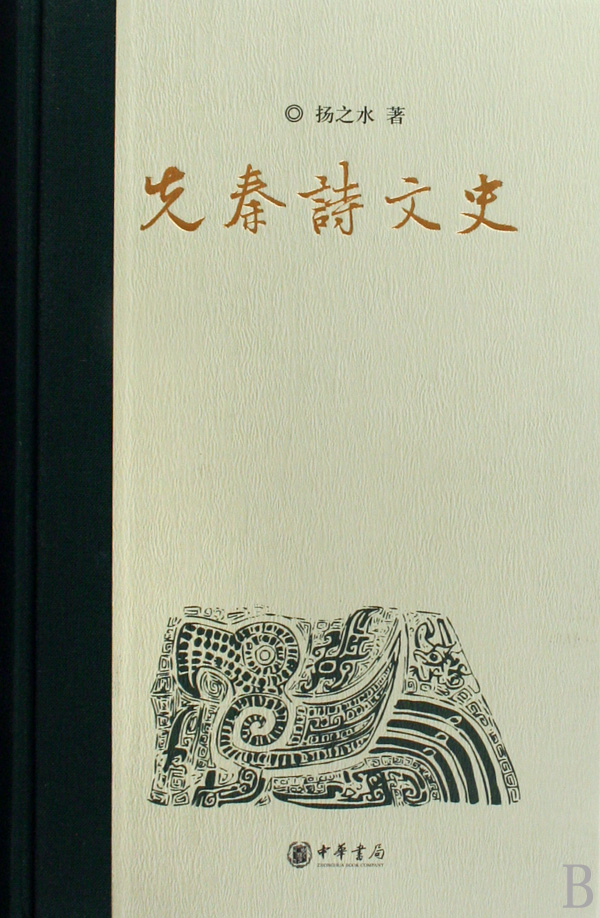 ◎ 扬之水 著
先秦詩文史
中華書局
ZHONGHUA BOOK COMPANY
B